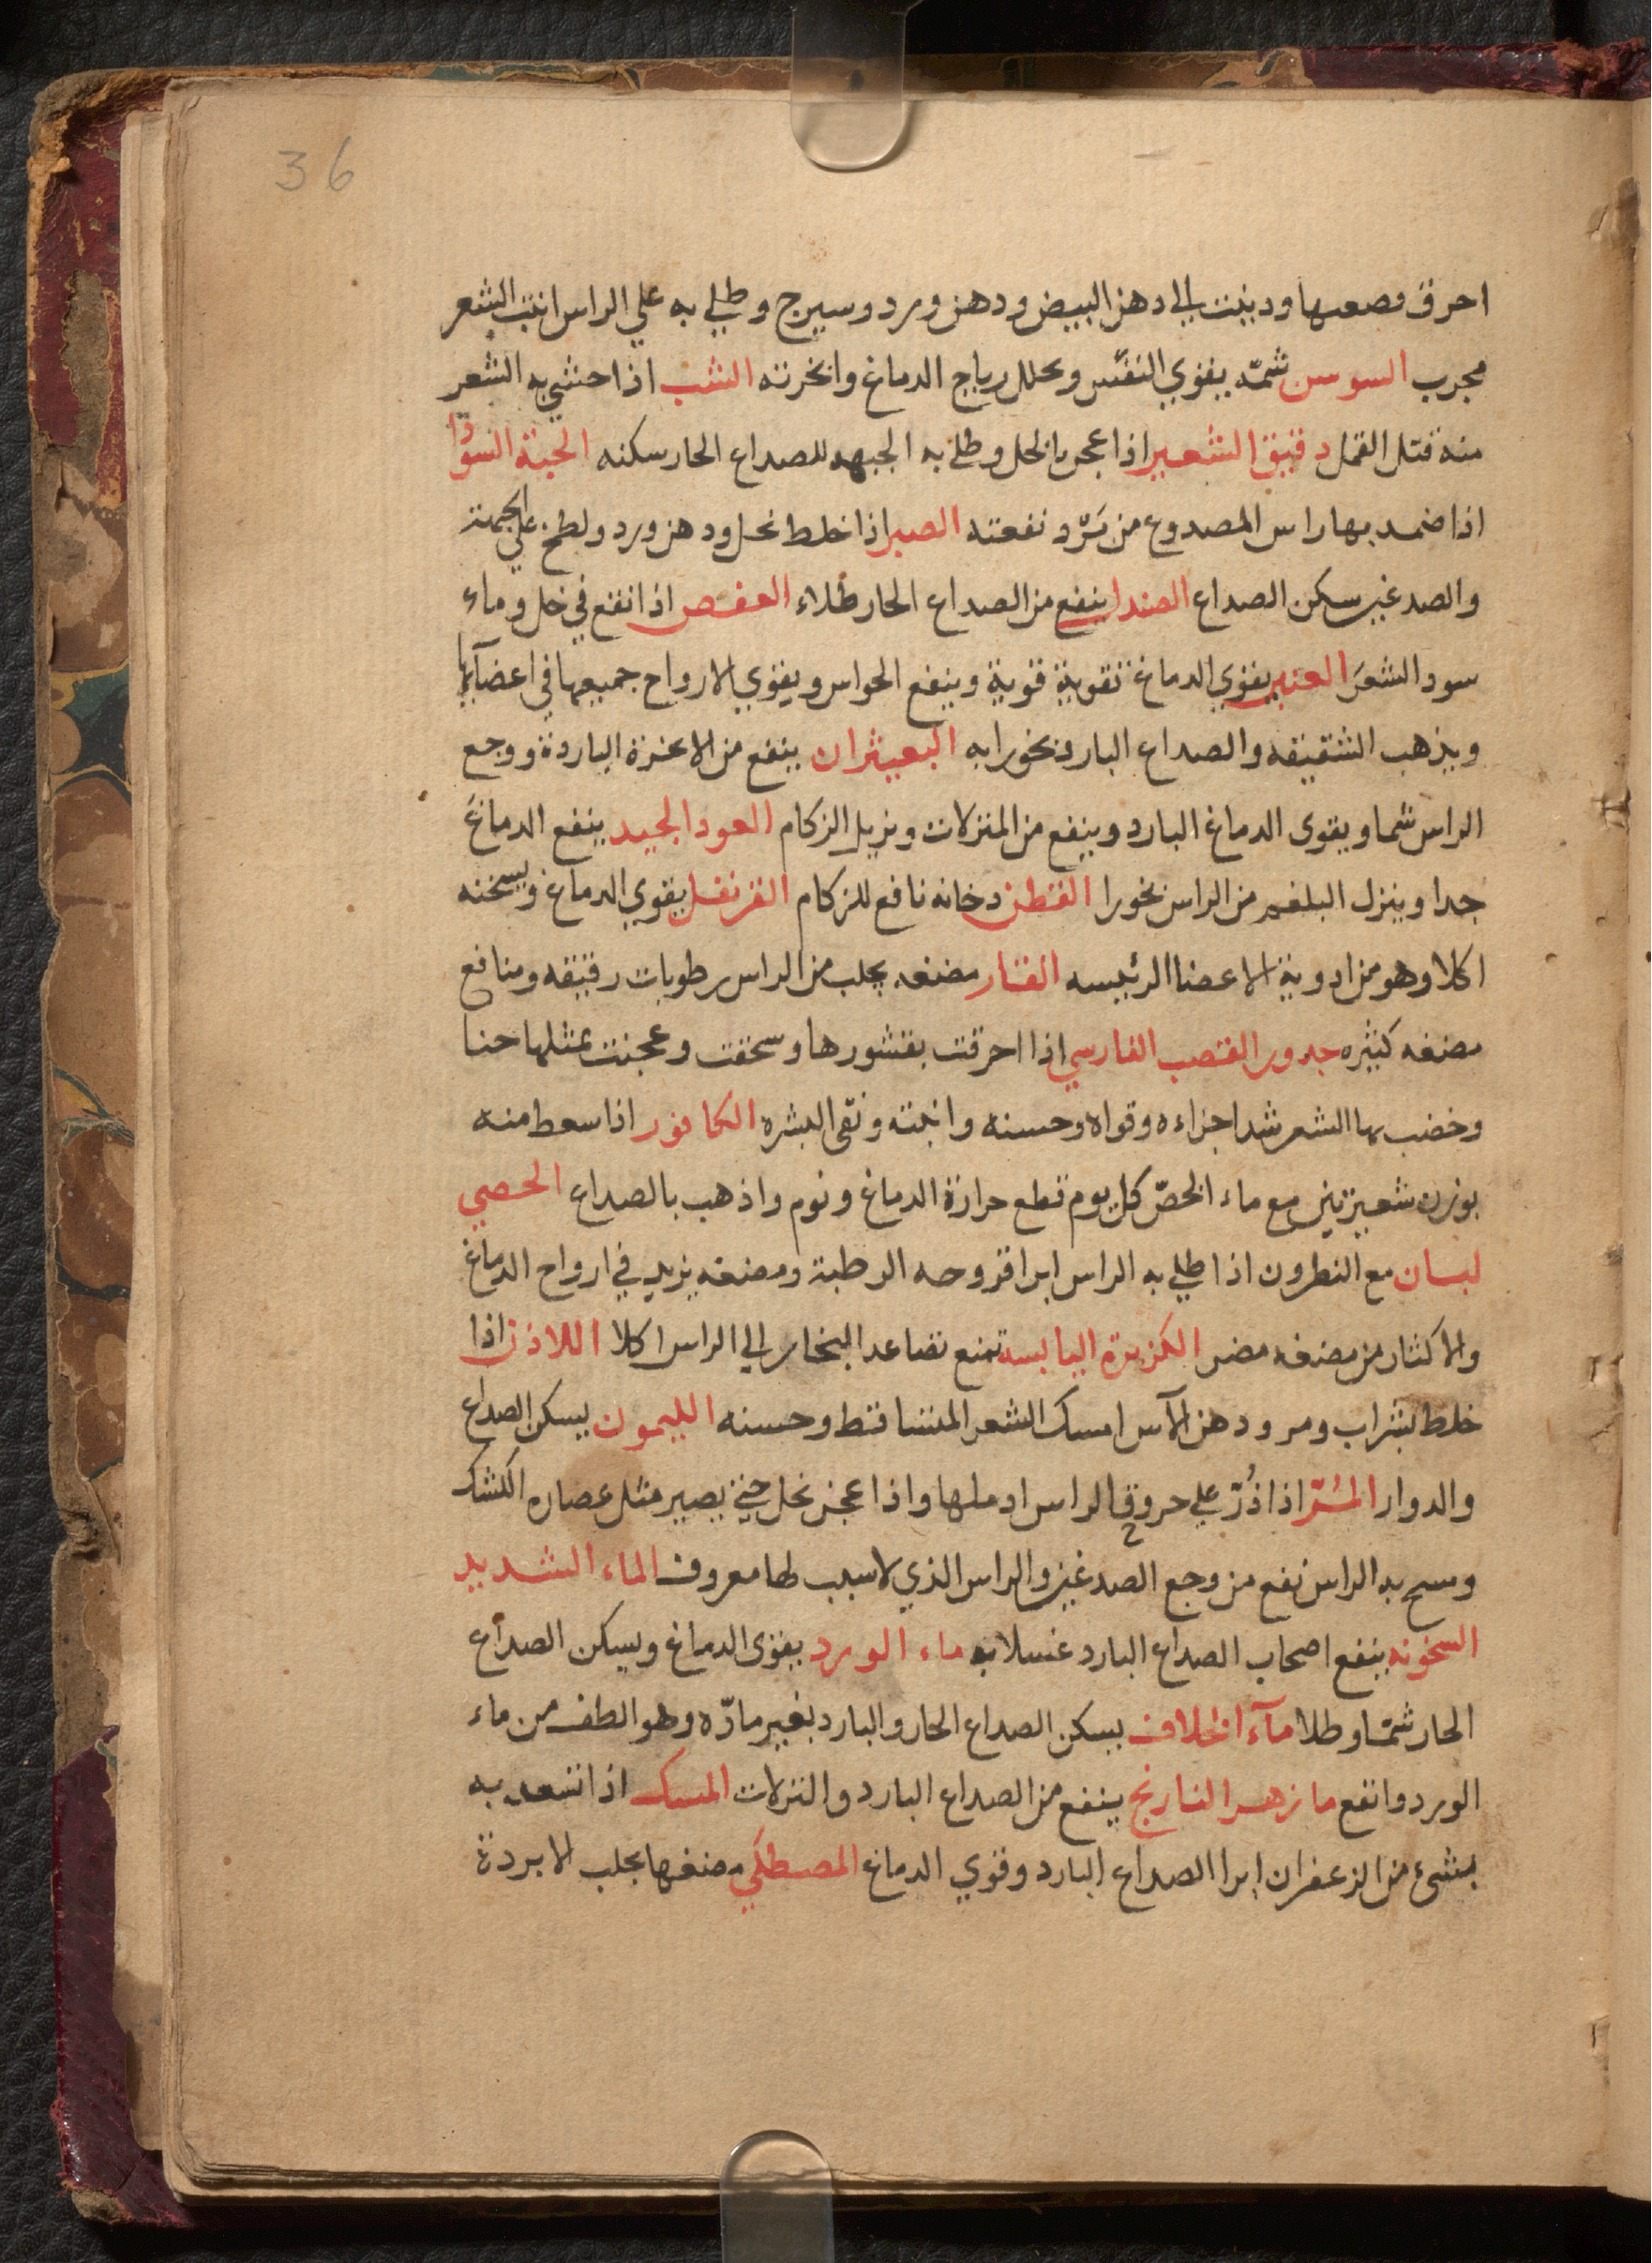 36
احرق وصعها ودينت الي دهن البيض ودهن ورد وسيرج وطلي به علي الراس انبت الشعر
مجرب السوسن شمّه يقوي النفس ويحلل رياح الدماغ وابخرته الشب اذا حشي به الشعر
منه قتل القمل دقيق الشعير اذا عجن بالخل وطلي به الجبهه للصداع الحار سكنه الحبة السودا
اذا ضمد بها راس المصدوع من بَرد نفعته الصبر اذا خلط بخل ودهن ورد ولطخ علي الجبهة
والصدغين سكن الصداع الصندل ينفع من الصداع الحار طلاء العفص اذا نقع في خل وماء
سود الشعر العنبر يقوي الدماغ تقوية قوية وينفع الحواس ويقوي الارواح جميعها في اعضآئها
ويذهب الشقيقه والصداع البارد بخورا به البعيثران ينفع من الابخرة الباردة ووجع
الراس شما ويقوى الدماغ البارد وينفع من المنزلات ويزيل الزكام العود الجيد ينفع الدماغ
جدا وينزل البلغم من الراس بخورا القطن دخانه نافع للزكام القرنفل يقوي الدماغ ويسخنه
اكلا وهو من ادوية الاعضا الرئيسه القنار مضغه يجلب من الراس رطوبات رقيقه ومنافع
مضغه كثيره جدور القصب الفارسي اذا احرقت بقشورها وسحقت وعجنت بمثلها حنا
وخضب بها الشعر شد اجزاءه وقواه وحسنه وانبته ونقى البشره الكافور اذا سعط منه
بوزن شعيرتين مع ماء الخصّ كل يوم قطع حرارة الدماغ ونوم واذهب بالصداع الحصي
لبان مع النطرون اذا طلي به الراس ابرا قروحه الرطبة ومضغه يزيد في ارواح الدماغ
والاكثار من مضغه مضر الكزبرة اليابسة تمنع تصاعد البخار الي الراس اكلا اللاذن اذا
خلط بشراب ومر ودهن الآس امسك الشعر المتساقط وحسنه الليمون يسكن الصداع
والدوار المُرّ اذا ذُرّ علي حروق الراس ادملها واذا عجن بخل حتي يصير مثل عصاره الكشك
ومسح به الراس نفع من وجع الصدغين والراس الذي لا سبب لها معروف الماء الشديد
السخونه ينفع اصحاب الصداع البارد غسلا به ماء الورد يقوى الدماغ ويسكن الصداع
الحار شمّا وطلا مآء الخلاف يسكن الصداع الحار والبارد بغير مادّه وهو الطف من ماء
الورد وانفع ما زهر النارنج ينفع من الصداع البارد والنزلات المسك اذا تسعد به
بشئ من الزعفران ابرا الصداع البارد وقوي الدماغ المصطكي مضغها يجلب الابردة